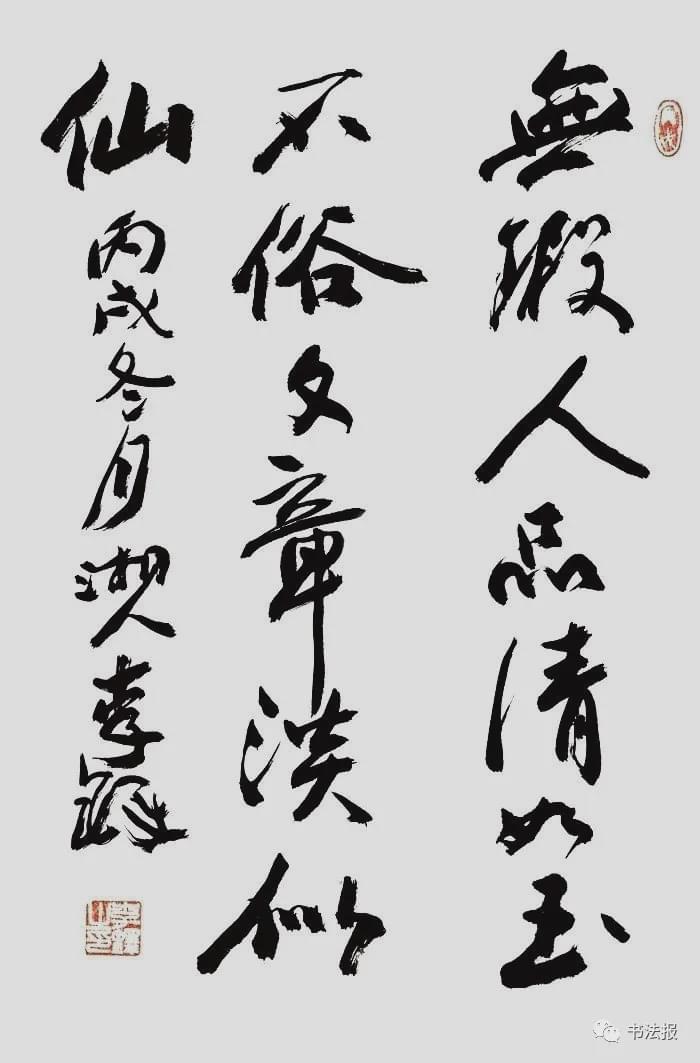 無瑕人品清如玉
不俗文章淡似
仙
丙戌冬月湘人李鐸
书法报